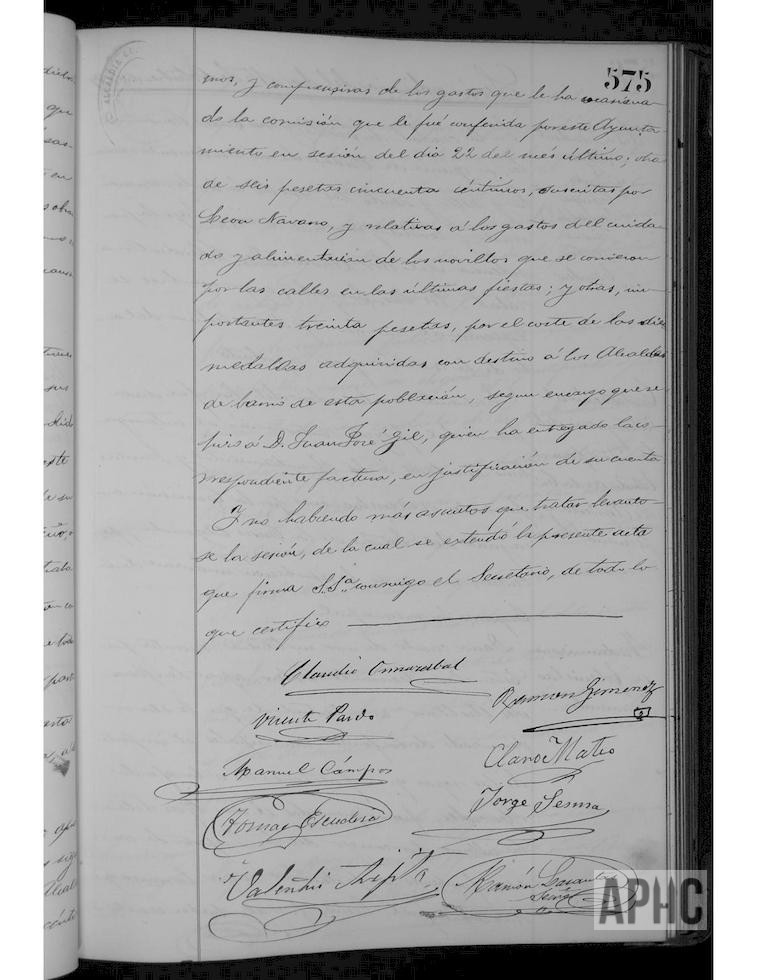 575
mos, y comprensivas de los gastos que le ha ocasiona-
do la comisión que le fué conferida por este Ayunta
miento en sesión del dia 22 del més último; otra
de seis pesetas cincuenta céntimos, suscritas por
Leon Navarro, y relativas á los gastos del cuida-
do y alimentacion de los novillos que se corrieron
por las calles en las últimas fiestas; y otras, im-
portantes treinta pesetas, por el coste de las diez
medallas adquiridas con destino á los Alcaldes
de barrio de esta población, segun encargo que se
hizo á D. Juan José Gil, quien ha entregado la co-
rrespondiente factura, en justificación de su cuenta
Y no habiendo más asuntos que tratar levanto-
se la sesión, de la cual se extendió la presente acta
que firma S.Sa. conmigo el Secretario, de todo lo
que certifico
Claudio Ormazabal
Ramon Gimenez
Vicente Pardo
Claro Mateo
Manuel Cámpos
Jorge Sesma
Tomas Escudero
Valentin
Ramón
APHC